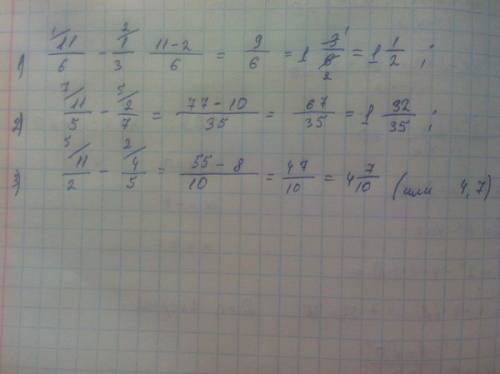 1) ¹⁄11/6 - ²⁄1/3 11-2/6 = 9/6 = 1 3̸ ¹/6̸ ₂ = 1 1/2 ;
2) ⁷⁄11/5 - ⁵⁄2/7 = 77-10/35 = 67/35 = 1 32/35 ;
3) ⁵⁄11/2 - ²⁄4/5 = 55-8/10 = 47/10 = 4 7/10 (или 4,7)